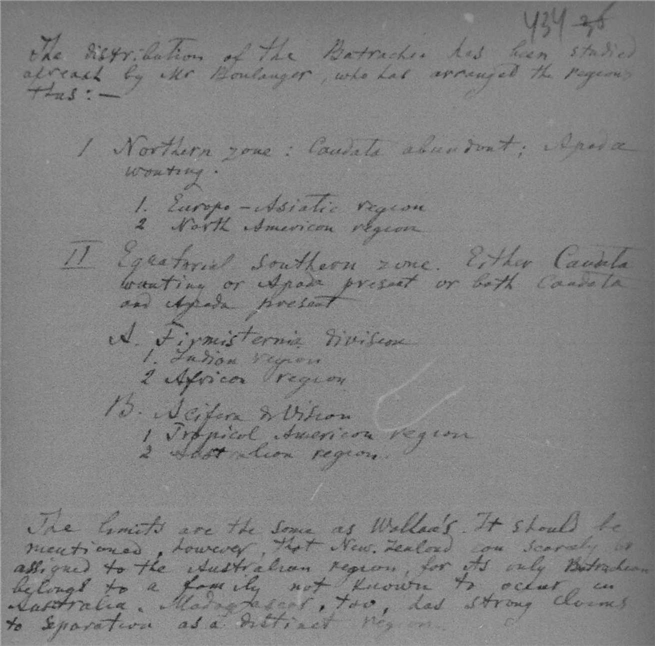 434 36
The distribution of the Batrachia has been studied
afresh by Mr Boulanger, who has arranged the regions
thus:—
I Northern zone: Caudata abundant; Apoda
wanting.
1. Europo-Asiatic region
2 North American region
II Equatorial Southern zone. Either Caudata
wanting or Apoda present or both Caudata
and Apoda present
A. Firmisternia division
1. Indian region
2 African region
B. Arcifera division
1 Tropical American region
2 Australian region.
The limits are the same as Wallace's. It should be
mentioned, however, that New Zealand can scarcely be
assigned to the Australian region, for its only Batrachian
belongs to a family not known to occur in
Australia. Madagascar, too, has strong claims
to separation as a distinct region.